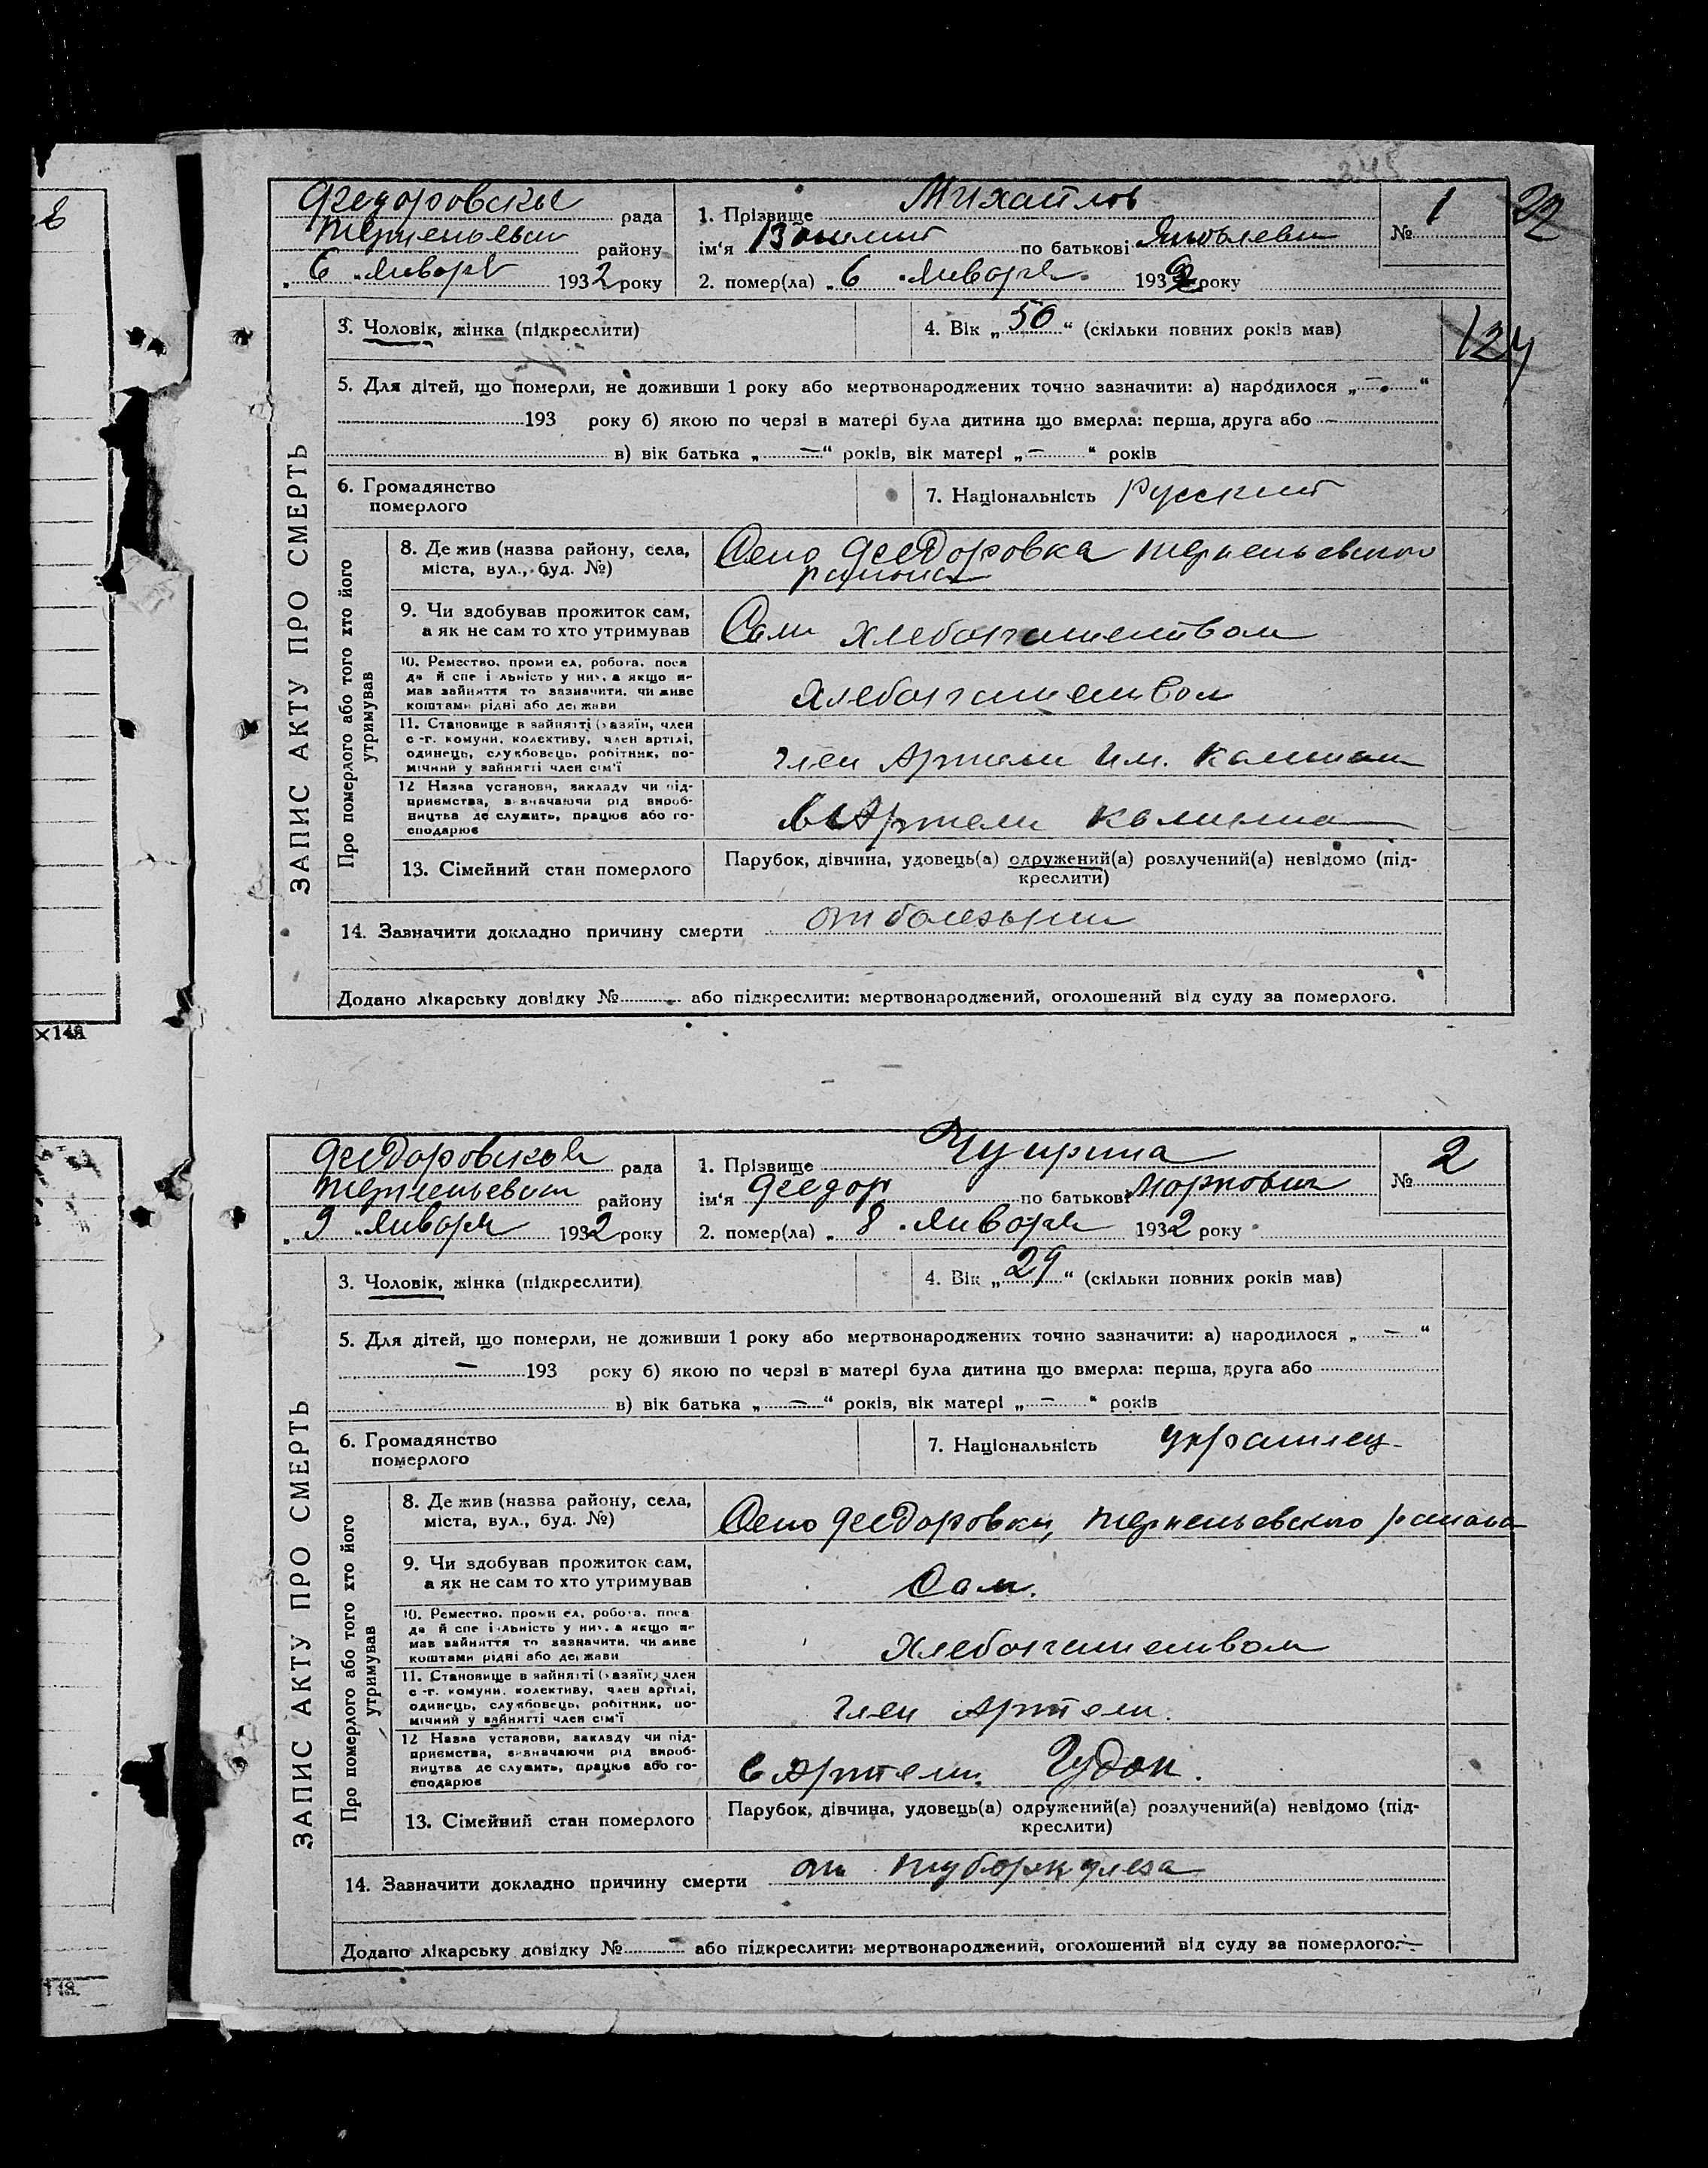 245
Федоровская рада
района району
6 Январь 1932 року
1. Прізвище Михайлов
ім'я по батькові Яковлевич
2. помер(ла) „ 6 Января 1932 року
№ 1
22
124
ЗАПИС АКТУ ПРО СМЕРТЬ
3. Чоловік, жінка (підкреслити)
4. Вік „ 50 “ (скільки повних років мав)
5. Для дітей, що померли, не доживши 1 року або мертвонароджених точно зазначити: а) народилося „ — “
193 року б) якою по черзі в матері була дитина що вмерла: перша, друга або —
в) вік батька „ — “ років, вік матері „ — “ років
6. Громадянство
померлого
7. Національність Русский
Про померлого або того хто його
утримував
8. Де жив (назва району, села,
міста, вул., буд. №)
Село Федоровка
района
9. Чи здобував прожиток сам,
а як не сам то хто утримував
Сам хлебопашеством
10. Ремество, проми ел, робота, поса
да й спе і льність у них, а якщо не
мав зайняття то зазначити, чи живе
коштами рідні або держави
Хлебопашеством
11. Становище в зайнятті (хазяїн, член
с.-г. комуни, колективу, член артілі,
одинець, службовець, робітник, по-
мічний у зайнятті член сім'ї
член Артели им. Калинина
12 Назва установи, закладу чи під-
приємства, визначаючи рід вироб-
ництва де служить, працює або го-
сподарює
в Артели Калинина
13. Сімейний стан померлого
Парубок, дівчина, удовець(а) одружений(а) розлучений(а) невідомо (під-
креслити)
14. Зазначити докладно причину смерти от болезни
Додано лікарську довідку № або підкреслити: мертвонароджений, оголошений від суду за померлого.
×148
Федоровская рада
району
9 Января 1932 року
1. Прізвище Чуприна
ім'я Федор по батькові Маркович
2. помер(ла) „ 8 Января 1932 року
№ 2
ЗАПИС АКТУ ПРО СМЕРТЬ
3. Чоловік, жінка (підкреслити)
4. Вік „ 29 “ (скільки повних років мав)
5. Для дітей, що померли, не доживши 1 року або мертвонароджених точно зазначити: а) народилося „ — “
— 193 року б) якою по черзі в матері була дитина що вмерла: перша, друга або
в) вік батька „ — “ років, вік матері „ — “ років
6. Громадянство
померлого
7. Національність украинец
Про померлого або того хто його
утримував
8. Де жив (назва району, села,
міста, вул., буд. №)
Село Федоровки, района
9. Чи здобував прожиток сам,
а як не сам то хто утримував
Сам.
10. Ремество, проми ел, робота, поса
да й спе і льність у них, а якщо не
мав зайняття то зазначити, чи живе
коштами рідні або держави
Хлебопашеством
11. Становище в зайнятті (хазяїн, член
с.-г. комуни, колективу, член артілі,
одинець, службовець, робітник, по-
мічний у зайнятті член сім'ї
член Артели.
12 Назва установи, закладу чи під-
приємства, визначаючи рід вироб-
ництва де служить, працює або го-
сподарює
в Артели. Гудок.
13. Сімейний стан померлого
Парубок, дівчина, удовець(а) одружений(а) розлучений(а) невідомо (під-
креслити)
14. Зазначити докладно причину смерти от туборкулеза
Додано лікарську довідку № — або підкреслити: мертвонароджений, оголошений від суду за померлого.
148.